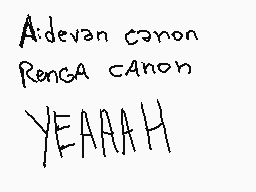 Aidevan canon
RenGA cAnon
YEAAAH